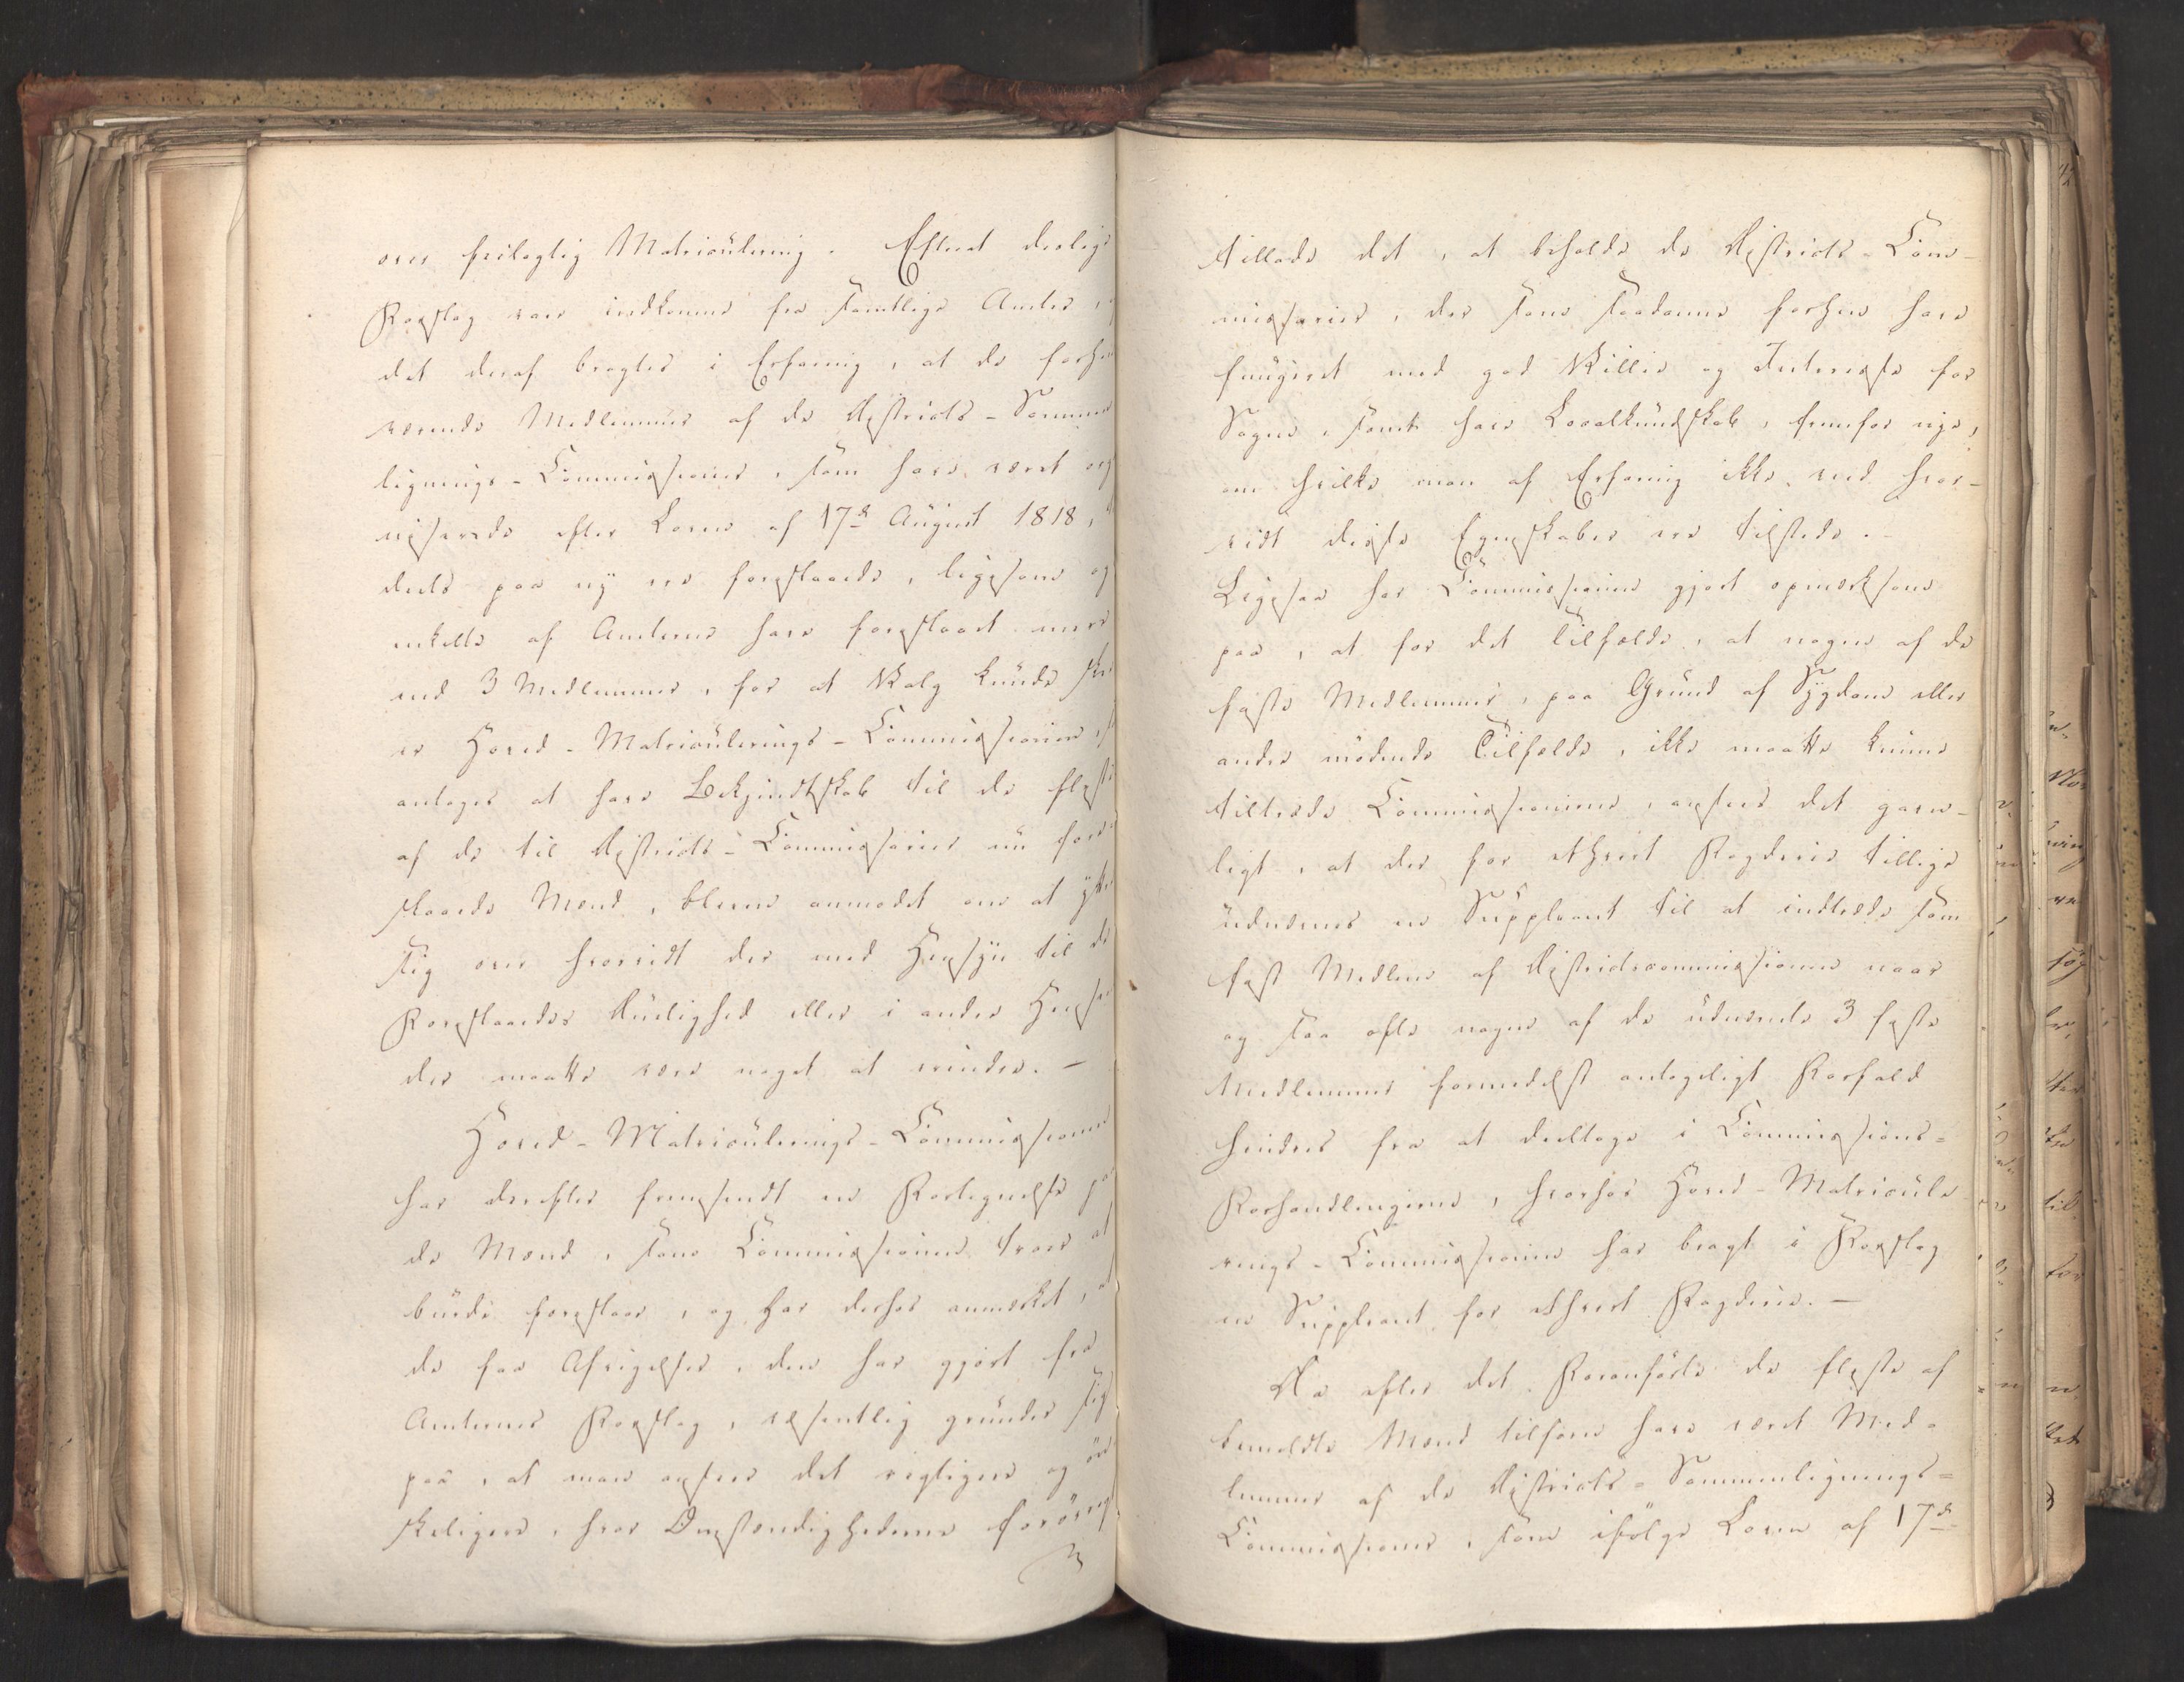 over feilagtig Matriculering. Efterat deslige
Forslag vare indkomne fra samtlige Amter,
det deraf bragtes i Erfaring, at de forhen
værende Medlemmer af de Districts-Sammen
lignings-Commissioner, som have været
efter Loven af 17de August 1818,
deels paa ny ere foreslaaede, ligesom og
enkelte af Amterne have foreslaaet mere
end 3 Medlemmer, for at Valg kunde skee
er Hoved-Matriculerings-Commissionen,
antages at have Bekjendtskab til de fleste
af de til Districts-Commissairer nu fore
slaaede Mænd, bleven anmodet om at yttre
sig over hvorvidt der med Hensyn til de
Foreslaaedes Duelighed eller i anden Henseende
der maatte være noget at erindre. —
Hoved-Matriculerings-Commissionen
har derefter fremsendt en Fortegnelse paa
de Mænd, som Commissionen troer at
burde foreslaae, og har derhos anmærket, at
de faa Afvigelser, den har gjort fra
Amternes Forslag, væsentlig grunder sig
paa, at man ansees det rigtigere og øn
skeligere, hvor Omstændighederne forøvrigt
tillade det, at beholde de Districts-Com-
missairer, der som saadanne forhen have
fungeret med god Villie og Interesse for
Sagen, samt have Localkundskab, fremfor nye,
om hvilke man af Erfaring ikke veed hvor-
vidt disse Egenskaber ere tilstede. -
Ligesaa har Commissionen gjort opmærksom
paa, at for det Tilfælde, at nogen af de
faste Medlemmer, paa Grund af Sygdom eller
andre mødende Tilfælde, ikke maatte kunne
tiltræde Commissionerne, ansees det gavn-
ligt, at der for ethvert Fogderie tillige
udnævnes en Suppleant til at indtræde som
fast Medlem af Districtscommissionen naar
og saa ofte nogen af de udnævnte 3 faste
Medlemmer formedelst antageligt Forfald
hindres fra at deeltage i Commissions-
Forhandlingerne, hvorfor Hoved-Matricule
rings-Commissionen har bragt i Forslag
en Suppleant for ethvert Fogderie. —
Da efter det Foranførte de fleste af
bemeldte Mænd tilforn have været Med-
lemmer af de Districts-Sammenlignings-
Commissioner, som ifølge Loven af 17de